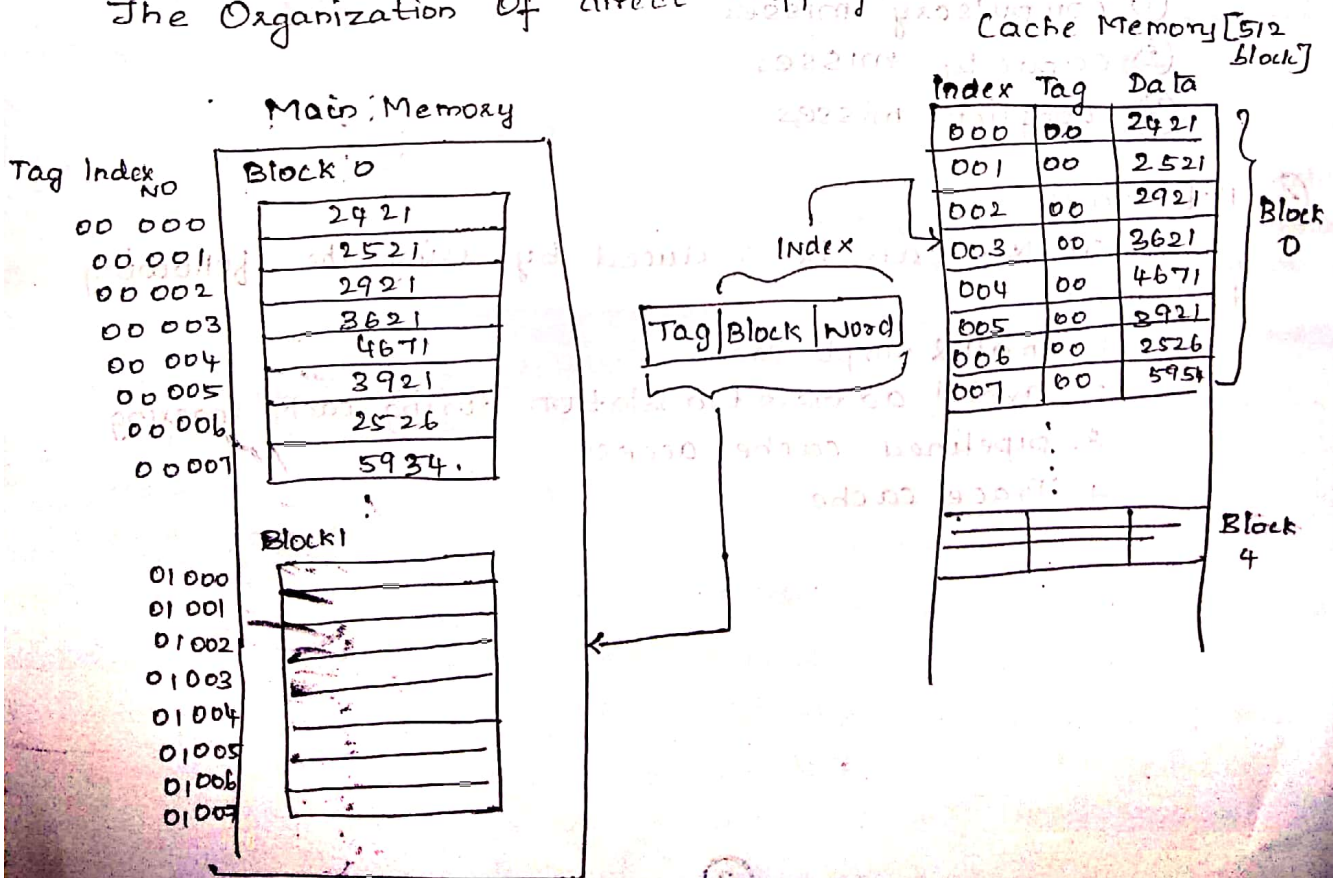 The Organization of direct
Cache Memory [512
block]
Main Memory
Index Tag Data
Tag Index
NO
Block 0
00 000 2421
00 001 2521
00 002 2921
00 003 3621
00 004 4671
00 005 3921
00 006 2526
00 007 5934.
Block 1
01 000
01 001
01 002
01 003
01 004
01 005
01 006
01 007
Index
Tag Block Word
000 00 2421
001 00 2521
002 00 2921
003 00 3621
004 00 4671
005 00 3921
006 00 2526
007 00
Block
0
Block
4